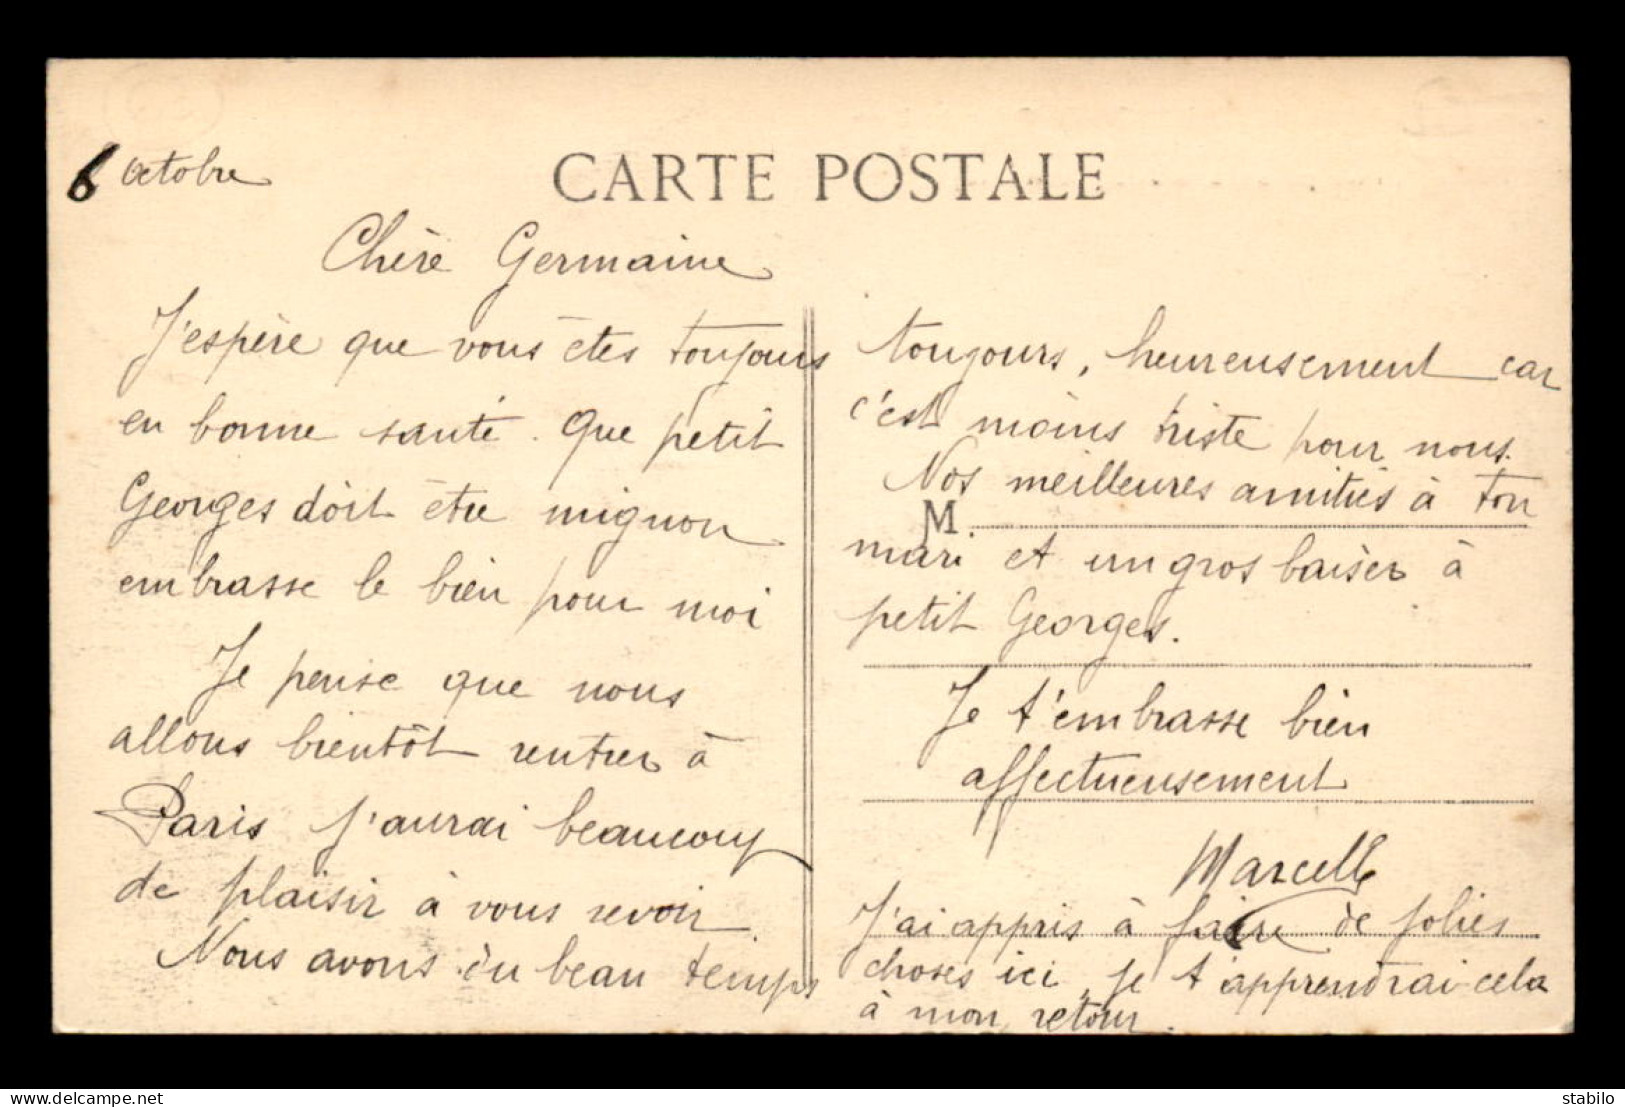 6 octobre
CARTE POSTALE
Chère Germaine
J'espère que vous êtes toujours
en bonne santé. Que petit
Georges doit être mignon
embrasse le bien pour moi
Je pense que nous
allons bientôt rentrer à
Paris j'aurai beaucoup
de plaisir à vous revoir
Nous avons du beau temps
toujours, heureusement car
c'est moins triste pour nous.
Nos meilleures amitiés à ton
M
mari et un gros baiser à
petit Georges.
Je t'embrasse bien
affectueusement
Marcelle
J'ai appris à faire de jolies
choses ici, je t'apprendrai cela
à mon retour.
delcampe.net
stabilo